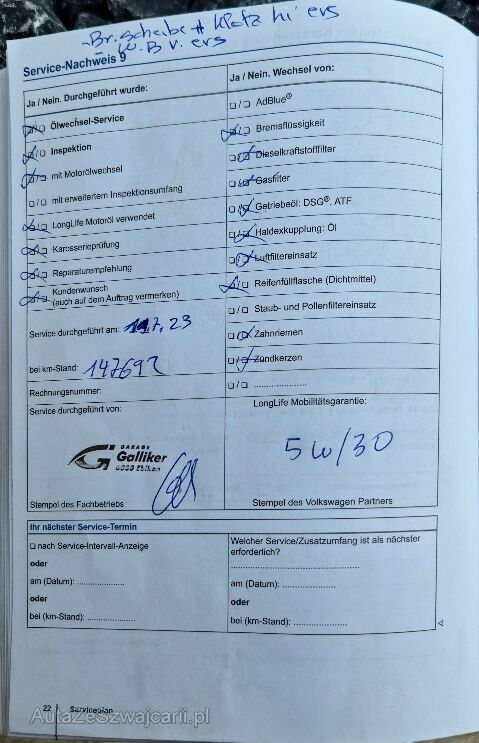 Br. Scheibe + Klötz hi ers
W. B v. ers
Service-Nachweis 9
Ja / Nein. Durchgeführt wurde:
Ölwechsel-Service
Inspektion
mit Motorölwechsel
mit erweitertem Inspektionsumfang
LongLife Motoröl verwendet
Karosserieprüfung
Reparaturempfehlung
Kundenwunsch
(auch auf dem Auftrag vermerken)
Service durchgeführt am: 7, 23
bei km-Stand: 147692
Rechnungsnummer:
Service durchgeführt von:
GARAGE
Galliker
6030 Ebikon
Stempel des Fachbetriebs
Ja / Nein. Wechsel von:
AdBlue®
Bremsflüssigkeit
Dieselkraftstofffilter
Gasfilter
Getriebeöl: DSG®, ATF
Haldexkupplung: Öl
Luftfiltereinsatz
Reifenfüllflasche (Dichtmittel)
Staub- und Pollenfiltereinsatz
Zahnriemen
Zündkerzen
....................
LongLife Mobilitätsgarantie:
5w/30
Stempel des Volkswagen Partners
Ihr nächster Service-Termin
nach Service-Intervall-Anzeige
oder
am (Datum): ..................
oder
bei (km-Stand): ..................
Welcher Service/Zusatzumfang ist als nächster
erforderlich?
..................................................
am (Datum): ....................
oder
bei (km-Stand): ....................
22 Serviceplan
AutaZeSzwajcarii.pl